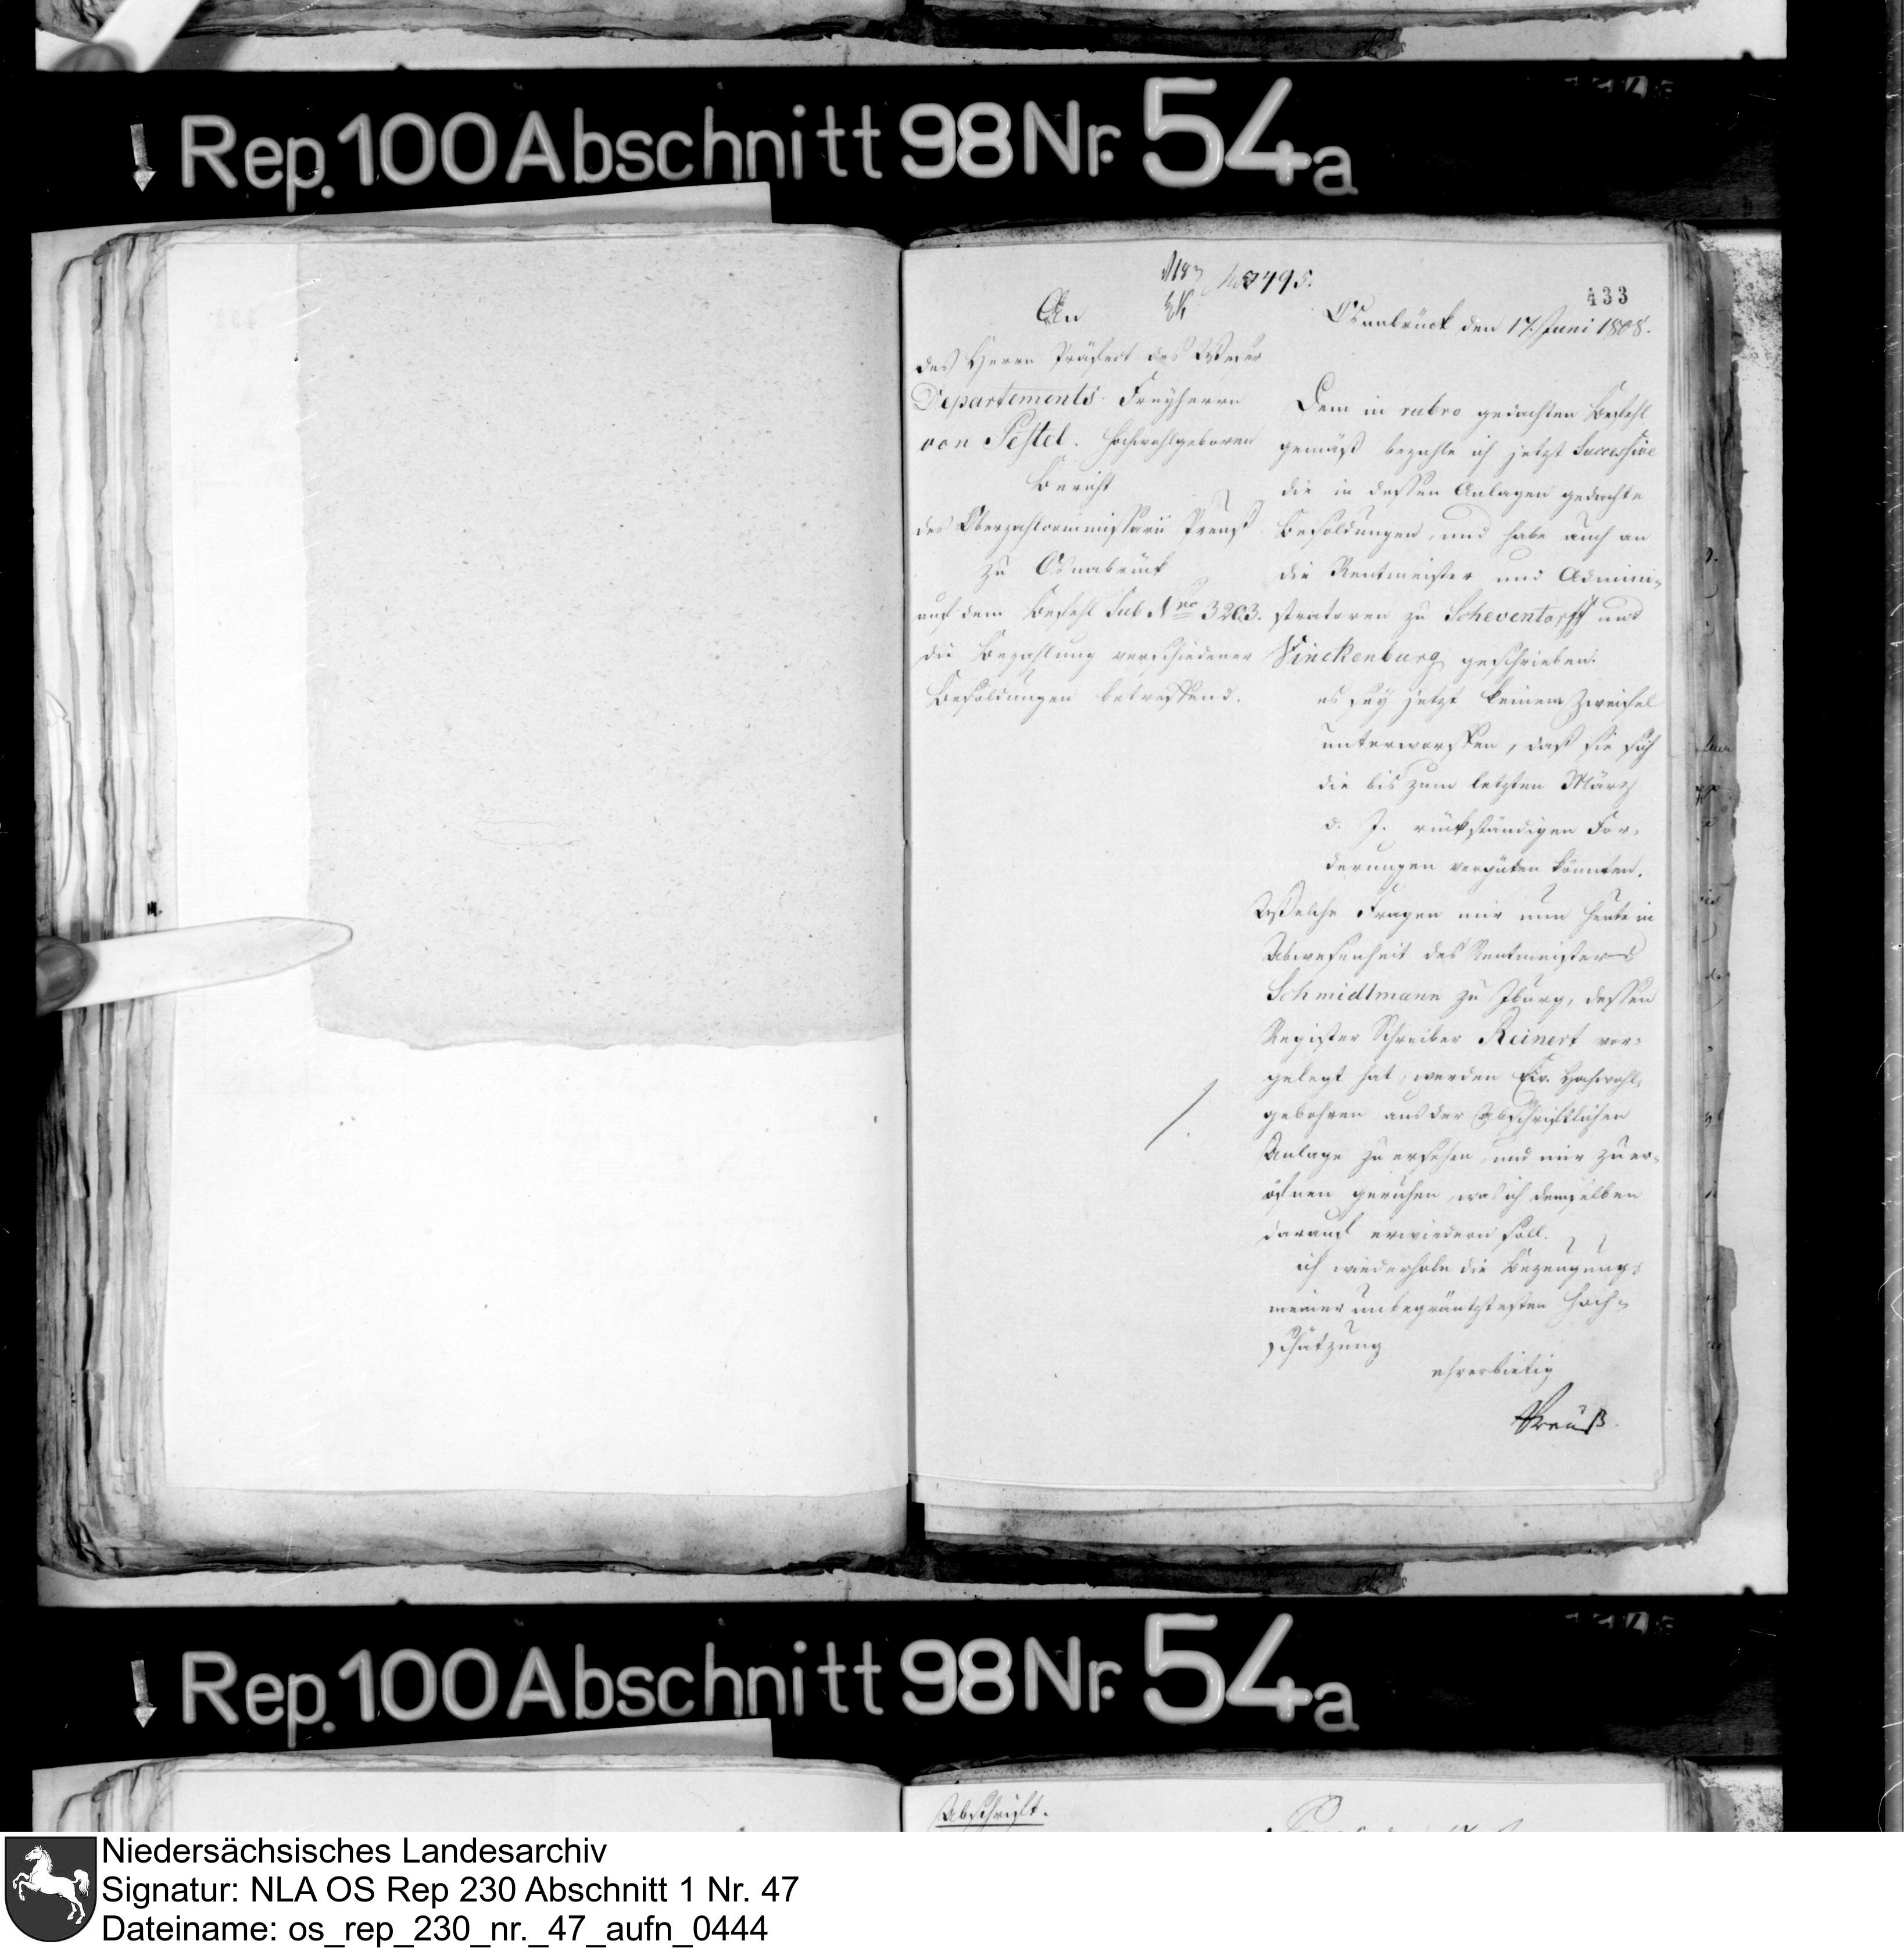 Rep. 100 Abschnitt 98 Nr. 54a
No 3495.
433
An
des Herrn Präfect des Weser
Departements Freyherrn
von Pestel. Hochwohlgeboren
Bericht
des Oberzahlcommissarii Preuß
zu Osnabrück
auf dem Befehl sub Nro 3203.
die Bezahlung verschiedener
Besoldungen betreffend.
Osnabrück den 17. Juni 1808.
Dem in rubro gedachten Befehl
gemäß bezahle ich jetzt Successive
die in dessen Anlagen gedachte
Besoldungen, und habe auch an
die Rentmeister und Admini-
stratoren zu Scheventorff und
Vinckenburg geschrieben:
es sey jetzt keinem Zweifel
unterworffen, daß sie sich
die bis zum letzten März
d. J. rückständigen For-
derungen vergüten könnten.
Welche Fragen mir nun heute in
Abwesenheit des Rentmeisters
Schmidtmann zu Iburg, dessen
Register Schreiber Reinert vor-
gelegt hat, werden Ew. Hochwohl-
gebohren aus der Abschriftlichen
Anlage zu ersehen, und mir zu er-
öfnen geruhen, was ich demselben
darauf erwiedern soll.
ich wiederhole die Bezeugung
meiner unbegräntztesten Hoch-
schätzung
ehrerbietig
Preuß
Rep. 100 Abschnitt 98 Nr. 54a
Abschrift.
Niedersächsisches Landesarchiv
Signatur: NLA OS Rep 230 Abschnitt 1 Nr. 47
Dateiname: os_rep_230_nr._47_aufn_0444